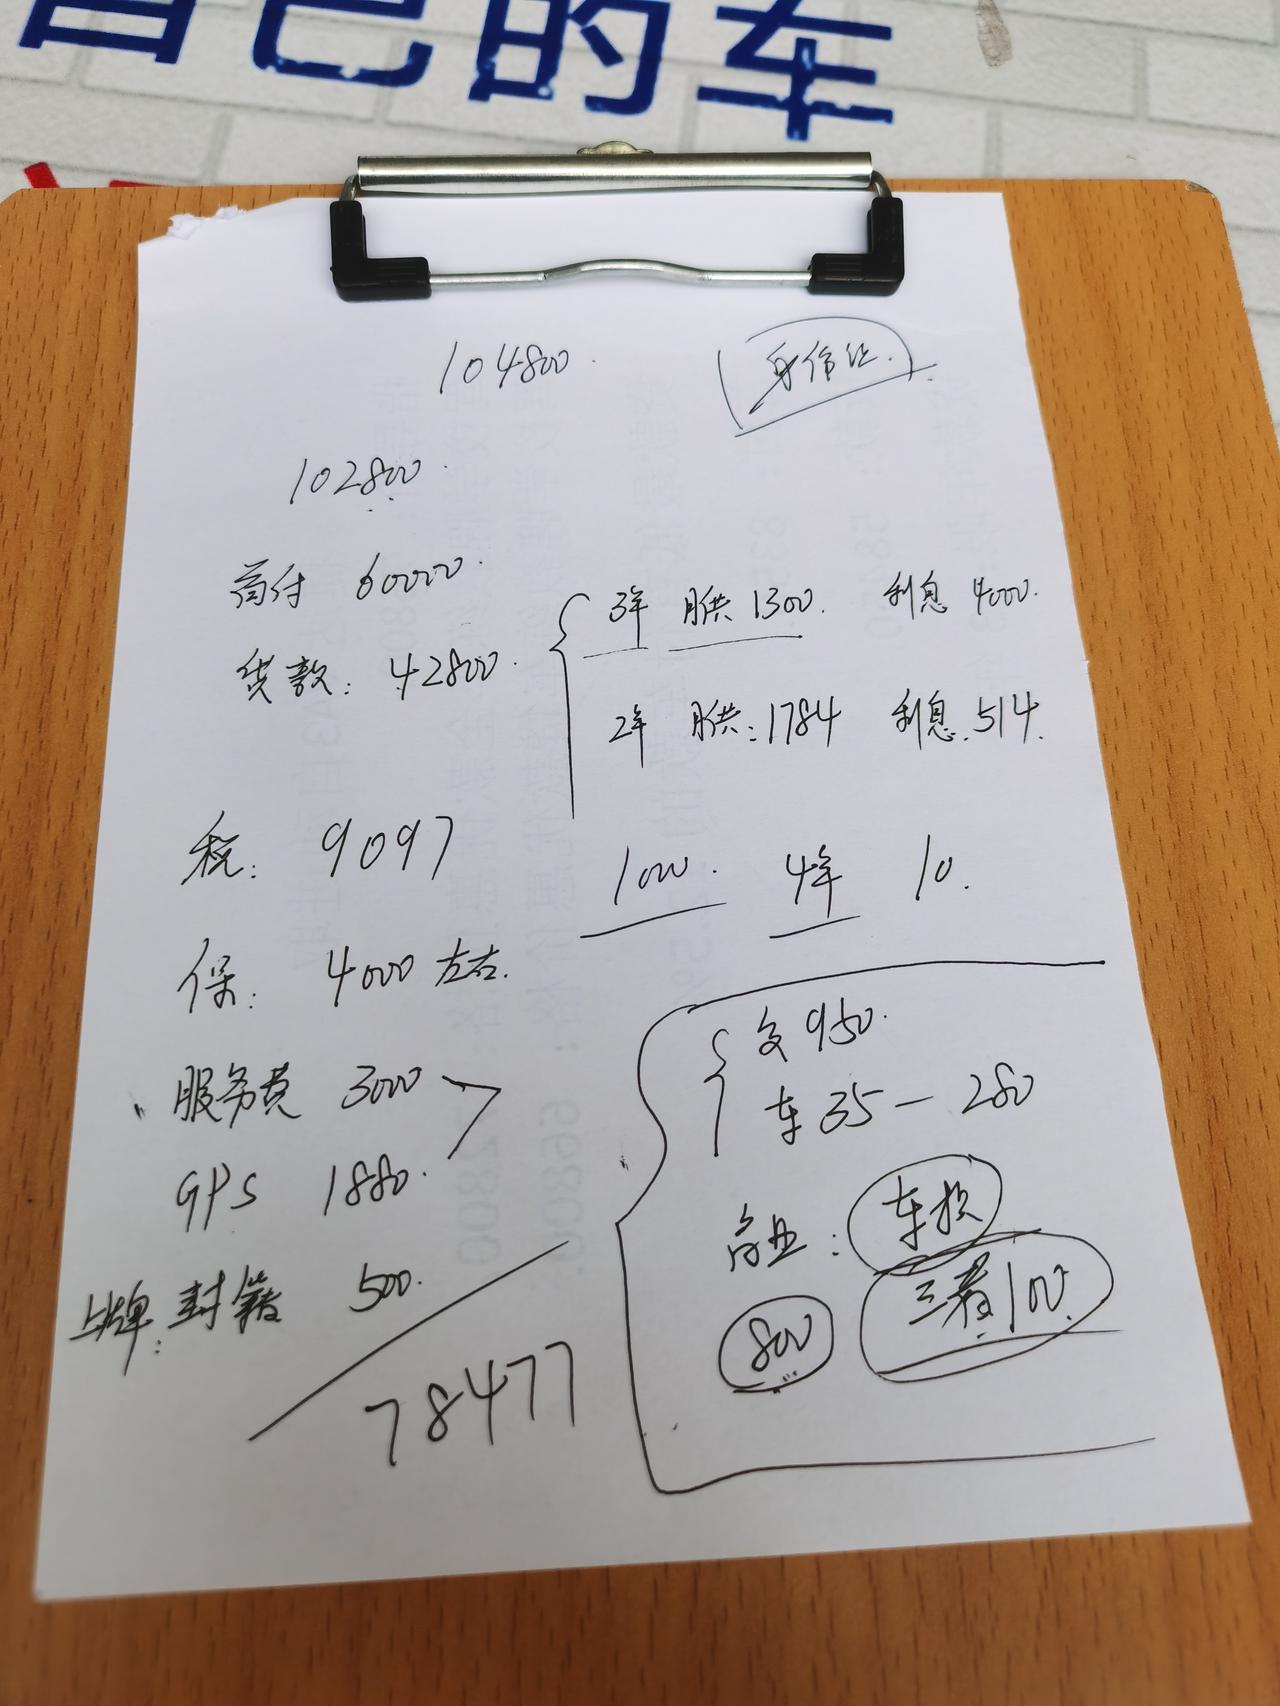 自己的车
104800.
身份证.
102800.
首付 60000.
贷款: 42800.
3年 月供 1300. 利息 4000.
2年 月供: 1784 利息. 514.
税: 9097
1000. 4年 10.
保: 4000 左右.
交 950.
车 35 — 280
服务费 3000
GPS 1880.
商业: 车损
三者 100
800
上牌: 封籍 500.
78477